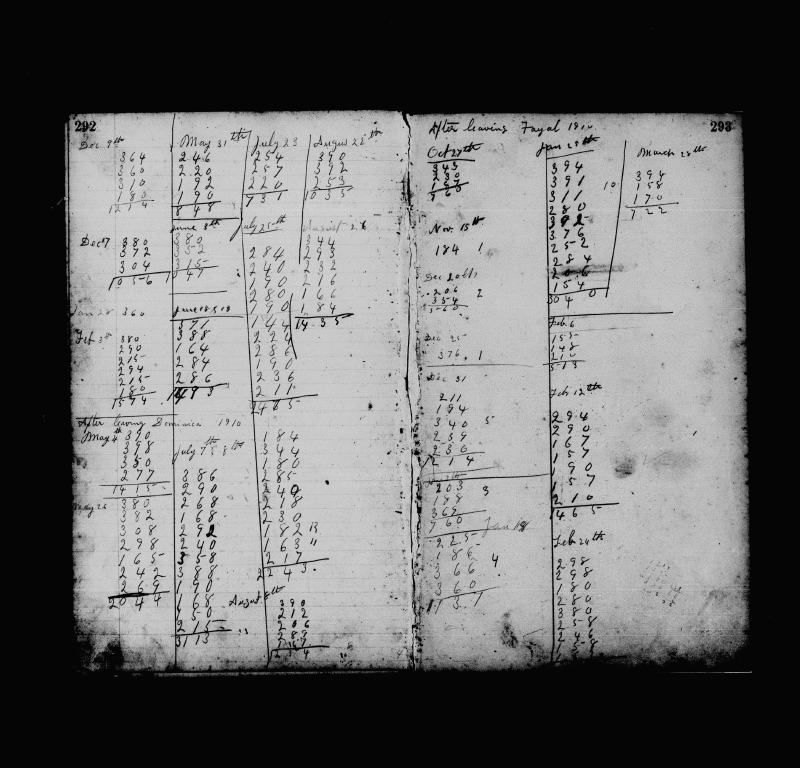 292
Dec 9th
364
360
310
180
1214
Dec 17
380
372
304
1056
Jan 28 360
Feb 3rd
380
290
215
294
215
180
1574
After leaving Dominica 1910
May 4th 390
398
350
277
1415
May 26
380
382
308
298
165
242
269
2044
May 31th
246
220
192
190
848
June 8th
380
352
315
1047
June 18 & 19
371
388
164
284
286
1493
July 7 & 8th
386
290
268
168
292
240
358
388
190
168
150
215
3113
July 23
254
257
220
731
July 25th
284
240
190
280
190
144
224
286
190
236
211
2485
184
344
180
285
240
218
230
182 B
163 "
217
2243
August 5th
390
212
206
289
August 22th
390
392
253
1035
August 26
344
293
232
216
166
184
1435
293
After leaving Fayal 1910
Oct 27th
343
230
760
Nov. 15th
184 1
Dec 20th
206 2
354
560
Dec 25
376. 1
Dec 31
211
194
340 5
259
236
203
188 3
369
760
Jan 18
225
186
366 4
360
1137
Jan 29th
394
391
311
280
392
376
252
284
206
154
3040
10
Feb 6
155
148
210
513
Feb 12th
294
290
167
157
190
157
210
1465
Feb 24th
298
298
180
280
380
258
March 28th
394
158
170
722